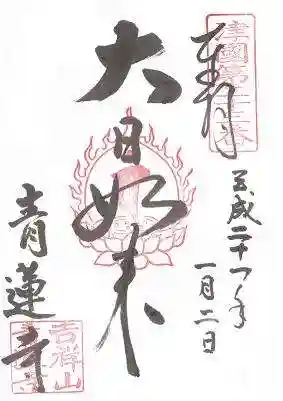 奉拝
津國第十三番
平成二十一年
一月二日
大日如来
青蓮寺
吉祥山